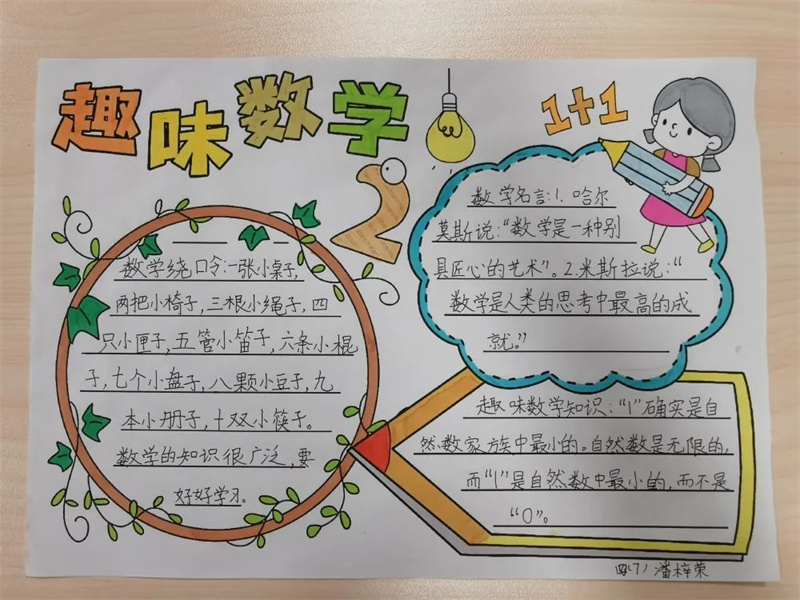 趣味数学
2
数学绕口令:一张小桌子,
两把小椅子,三根小绳子,四
只小匣子,五管小笛子,六条小棍
子,七个小盘子,八颗小豆子,九
本小册子,十双小筷子。
数学的知识很广泛,要
好好学习。
1+1
数学名言:1.哈尔
莫斯说:“数学是一种别
具匠心的艺术”。2.米斯拉说:“
数学是人类的思考中最高的成
就。”
趣味数学知识:“1”确实是自
然数家族中最小的。自然数是无限的,
而“1”是自然数中最小的,而不是
“0”。
四(7)潘梓荣